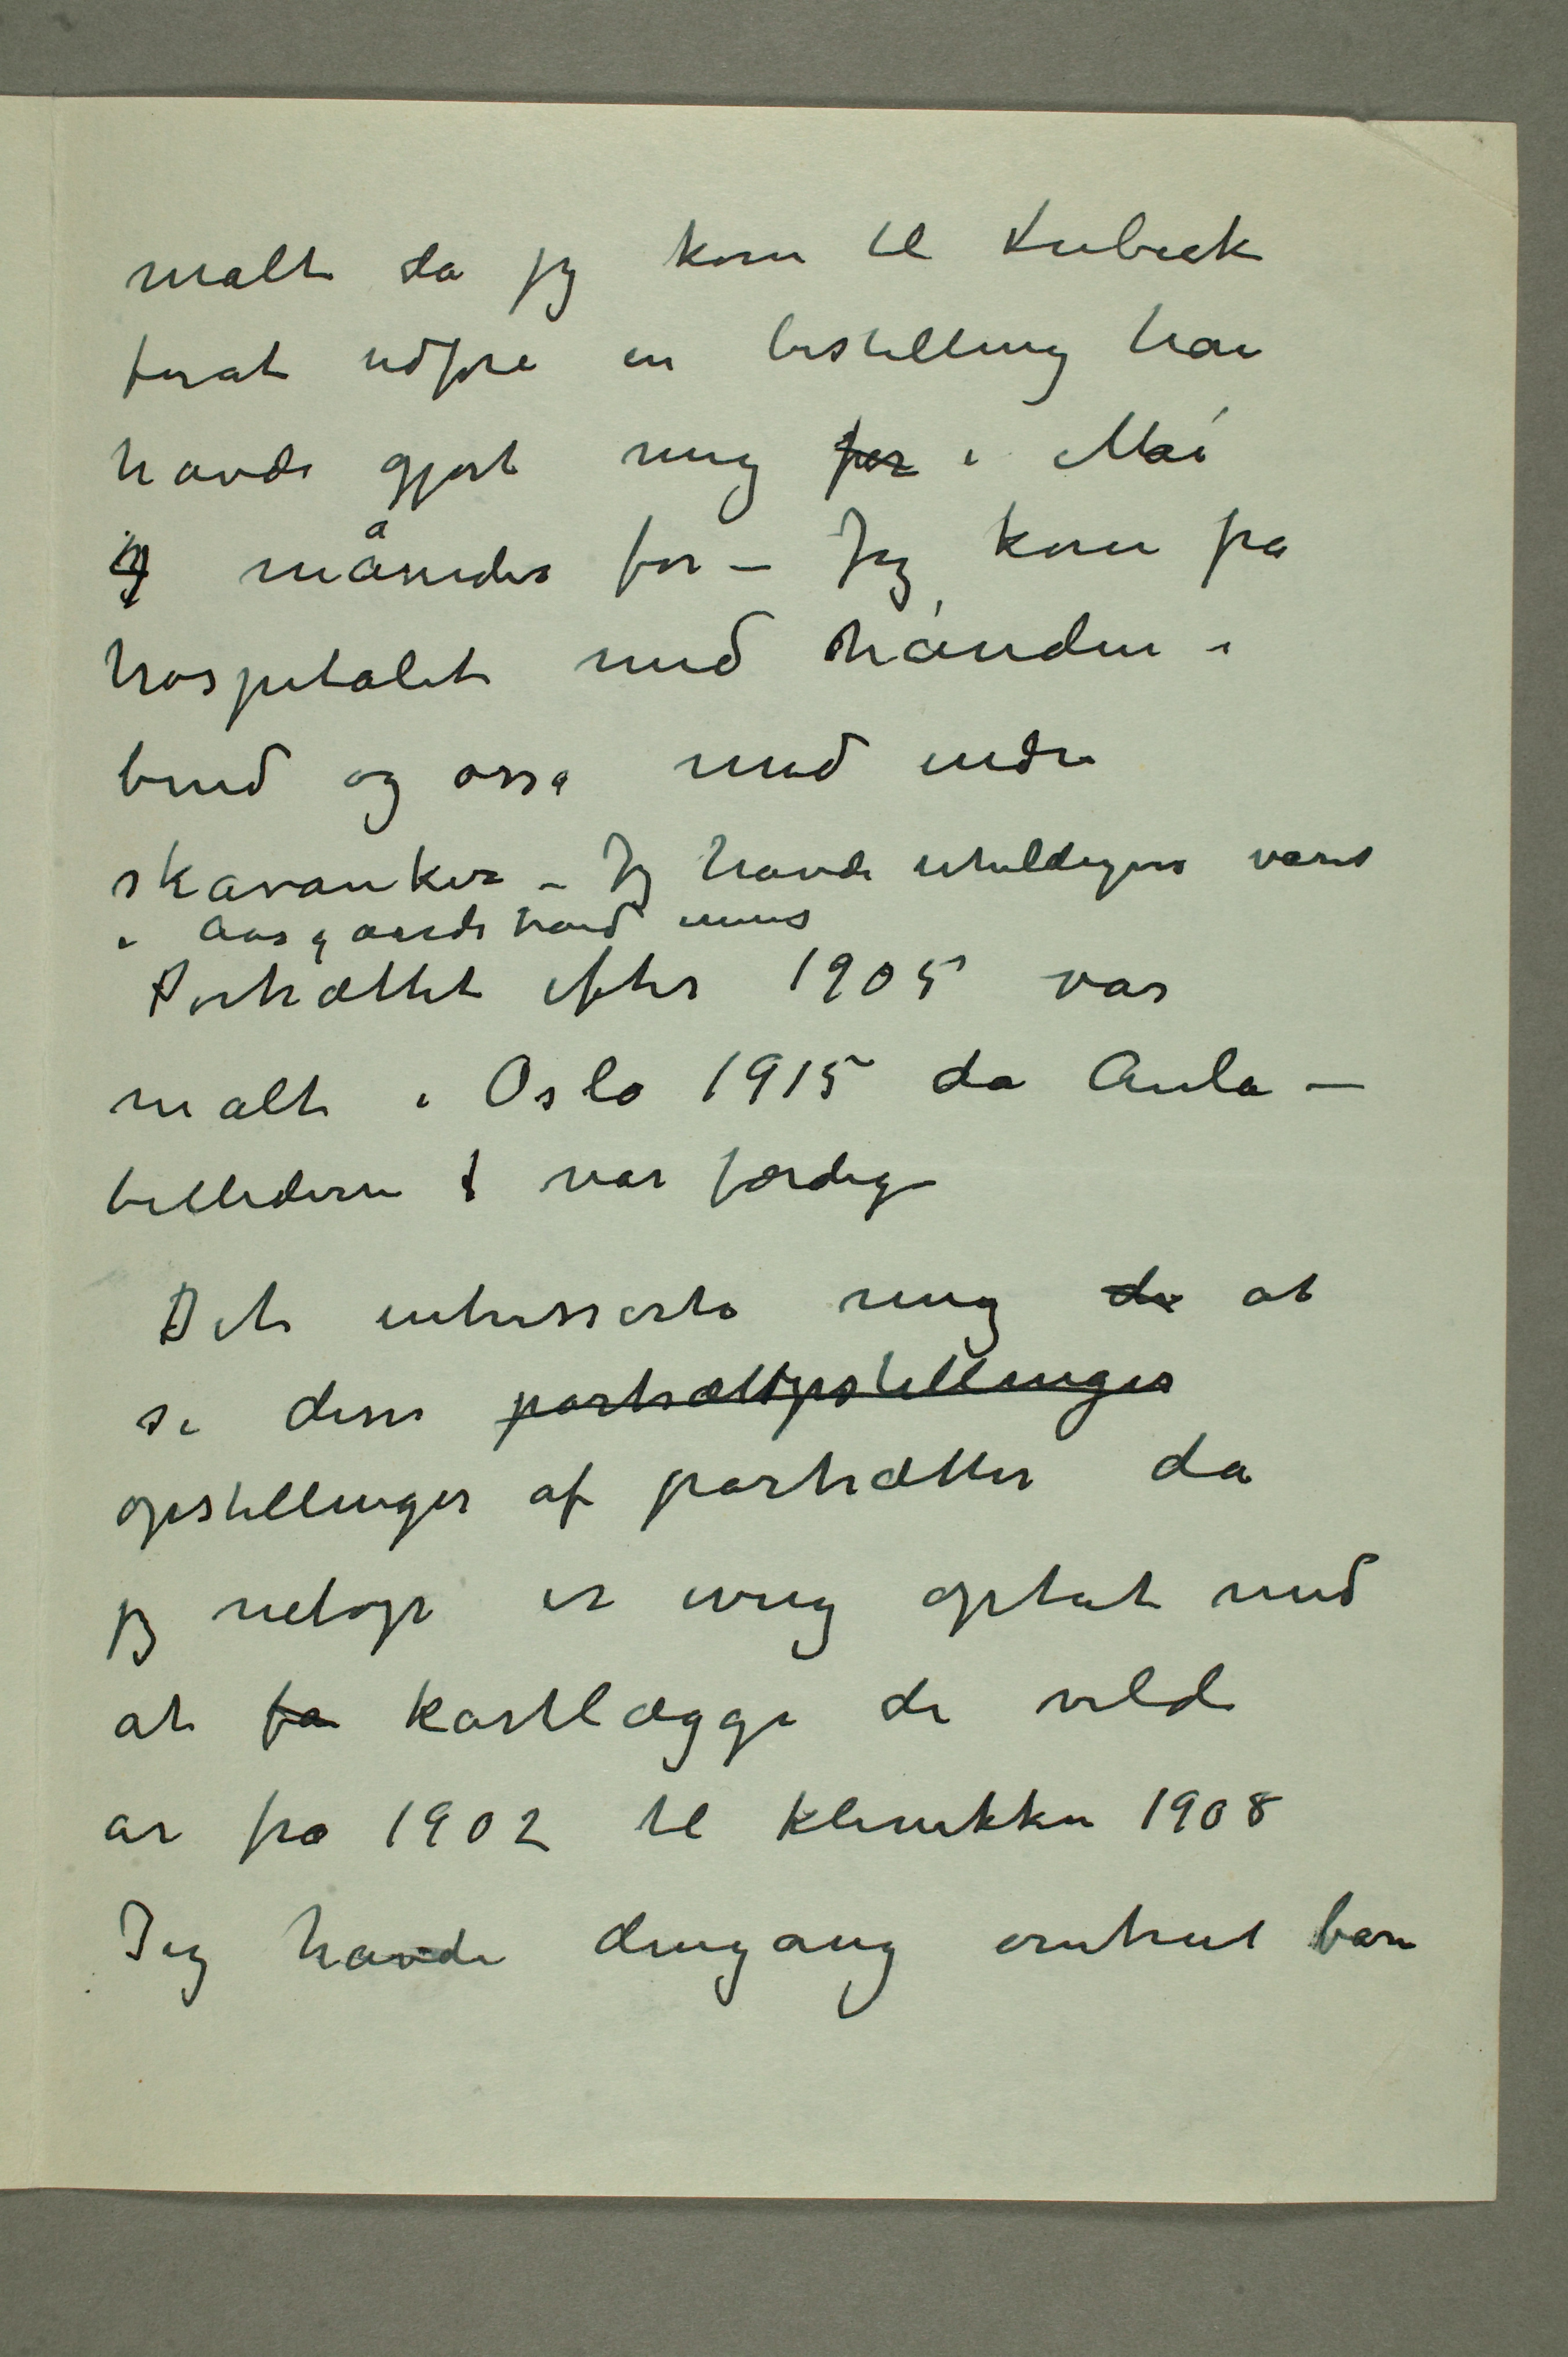 malt da jeg kom til Lubeck
forat udføre en bestilling han
havde gjort mig for i Mai
måneder før – Jeg kom fra
hospitalet med hånden i
bind og osså med indre
skavanker – Jeg havde uheldigvis været
i Aasgaardstrand imens
Portrættet efter 1905 var
malt i Oslo 1915 da Aula –
billederne var færdige
Det intresserte mig de at
se disse portrætopstillinger
opstillinger af portrætter da
jeg netop er ivrig optat med
at få kartlægge de vilde
år fra 1902 til klinikken 1908
Jeg havde dengang omtrent bare